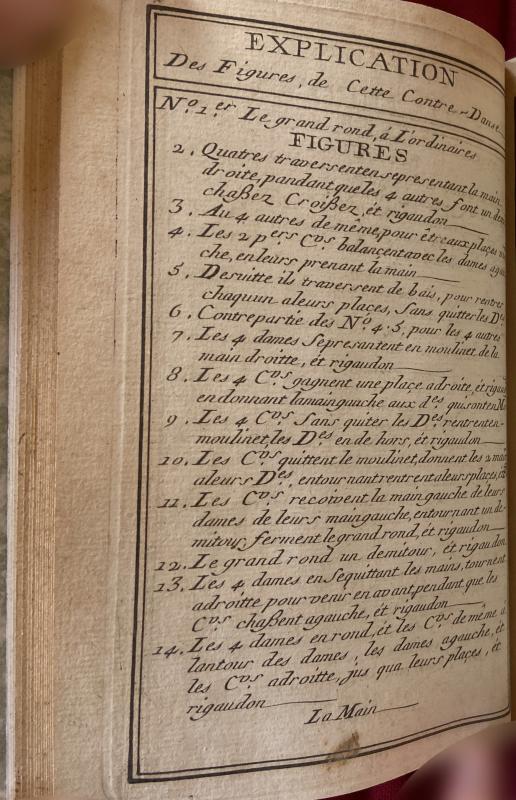 EXPLICATION
Des Figures, de Cette Contre-Danse
N.o 1.er Le grand rond, á L'ordinaires
FIGURES
2. Quatres traversenten sepresentant la main
droite, pandant que les 4 autres font un demi
chaßez Croißez, ét rigaudon
3. Au 4 autres de même, pour être aux places
4. Les 2 p.ers C.vs balançent avec les dames agau
che, enleurs prenant la main
5. Desuitte ils traversent de bais, pour rentrer
chaquun aleurs places, Sans quitter les D.es
6. Contrepartie des N.o 4. 5, pour les 4 autres
7. Les 4 dames Sepresantent en moulinet de la
main droitte, ét rigaudon
8. Les 4 C.vs gagnent une place adroite, ét rigau
en donnant lamainguaiche aux d.es qui sont en
9. Les 4 C.vs Sans quiter les D.es rentrent en-
moulinet, les D.es en de hors, ét rigaudon
10. Les C.vs quittent le moulinet, donnent les 2 main
aleurs D.es entournant rentrent aleurs places,
11. Les C.vs recoivent la main gauche de leurs
dames de leurs maingauche, entournant un de
mitour, ferment le grand rond, ét rigaudon
12. Le grand rond un demitour, ét rigaudon
13. Les 4 dames en Sequittant les mains, tournent
adroitte pour venir en avant, pendant que les
C.vs chaßent agauche, ét rigaudon
14. Les 4 dames en rond, ét les C.vs de même a
lantour des dames, les dames agauche, ét
les C.vs adroitte, jus qua leurs places, ét
rigaudon
La Main